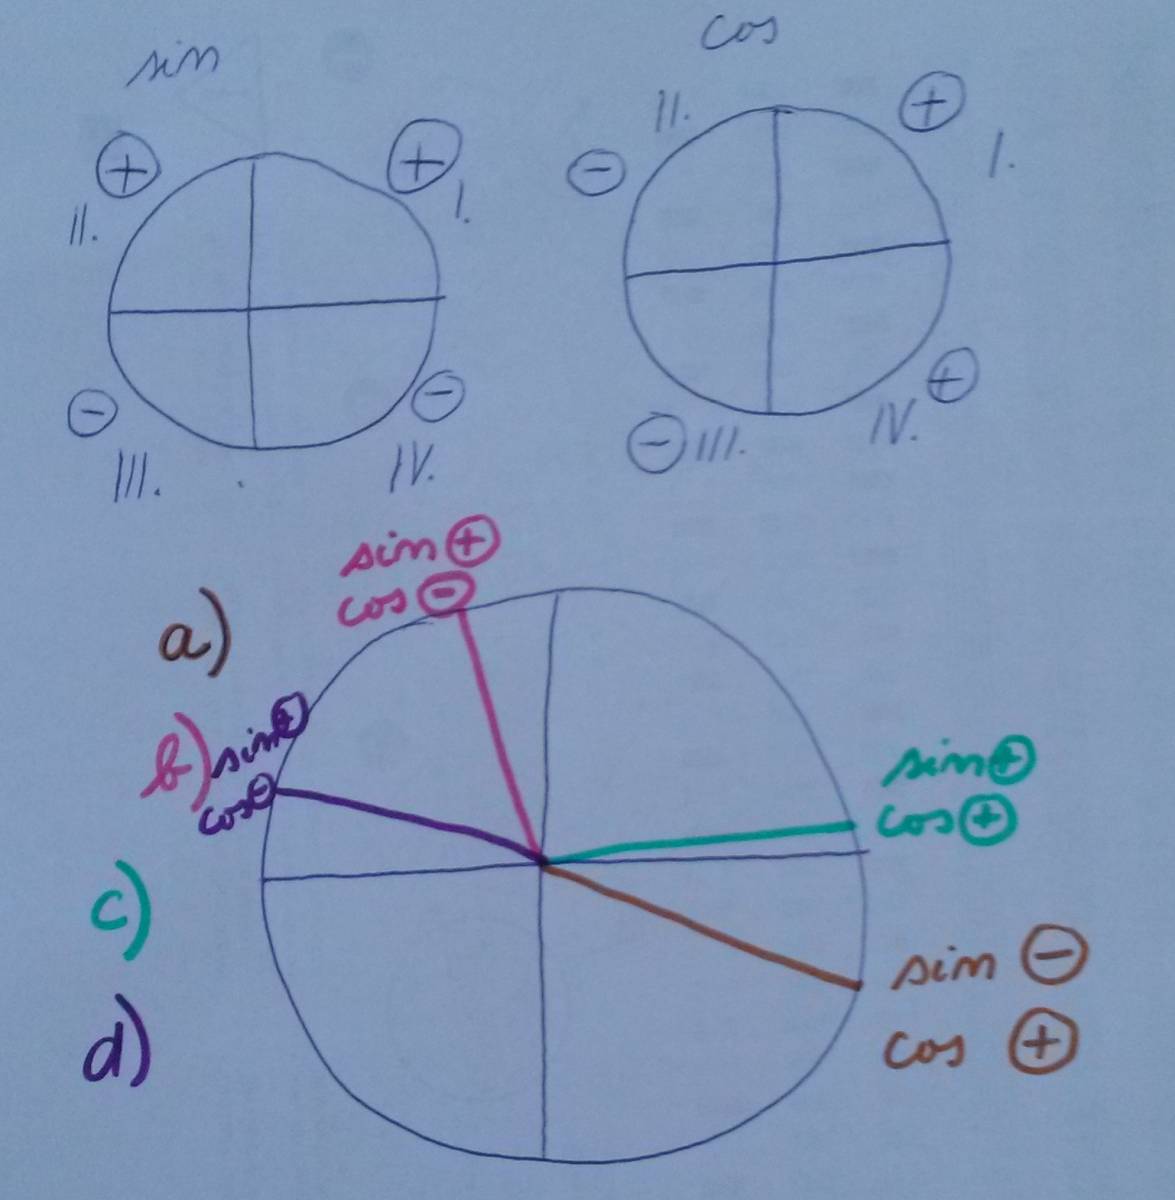 sin
cos
⊕ ⊕
II. I.
II. ⊕
⊖ I.
⊖ ⊖
III. IV.
⊕
⊖ III. IV.
sin ⊕
cos ⊖
a)
b) sin ⊕
cos ⊖
sin ⊕
cos ⊕
c)
sin ⊖
cos ⊕
d)